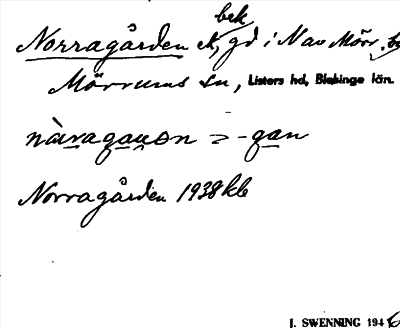 bek
Norragården gd i N av Mörr
Mörrums sn, Listers hd, Blekinge län.
Norragården 1938 kb
J. SWENNING 1946